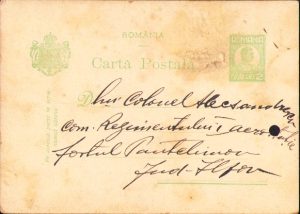 ROMÂNIA
Carta Postala
Dlui Colonel Alecsandrescu
com. Regimentului 1 aero
fortul Pantelimon
Jud. Ilfov